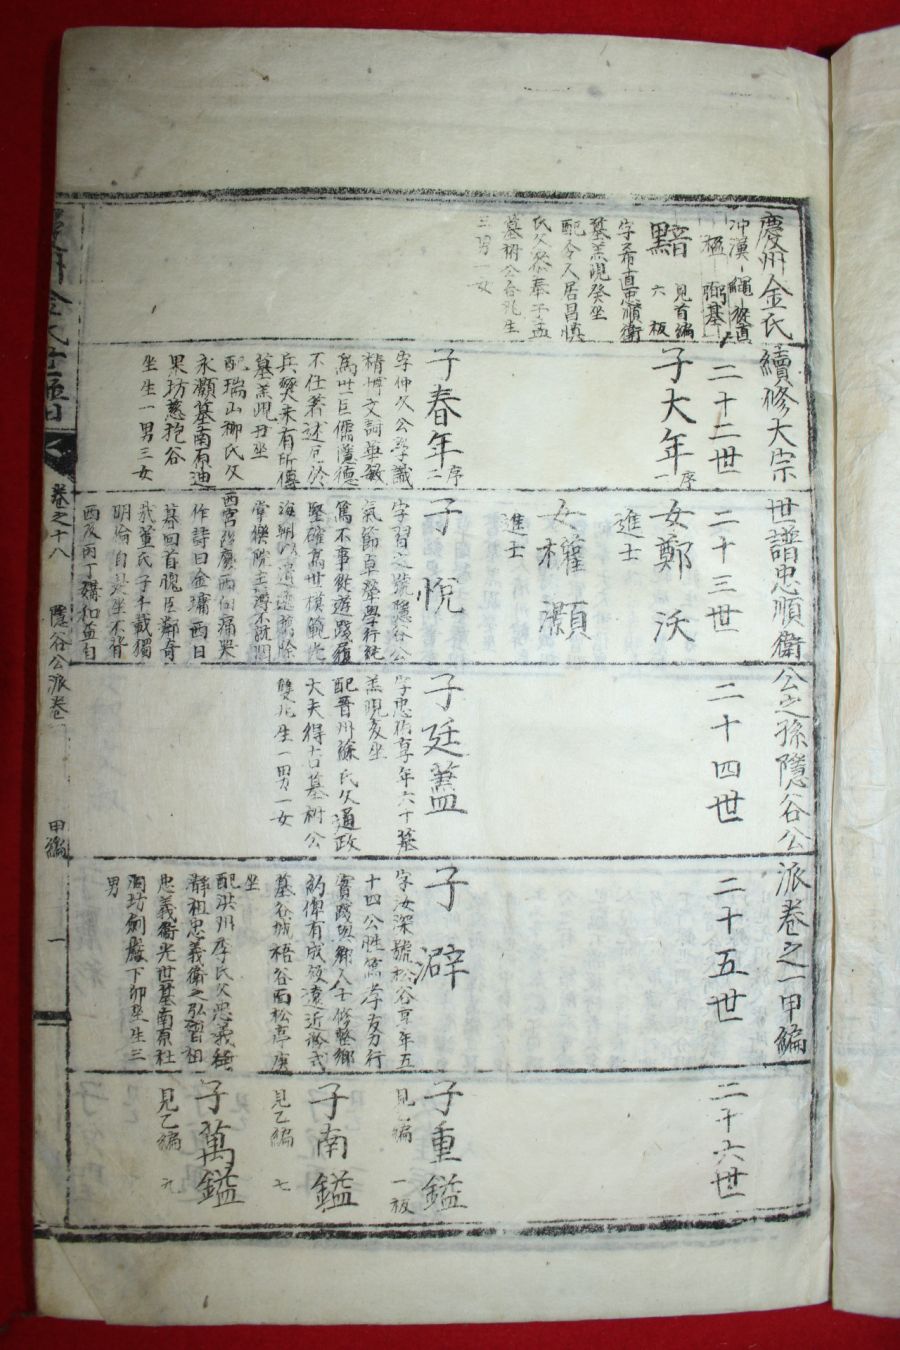 慶州金氏續修大宗世譜忠順衛公之孫隱谷公派卷之一甲編
二十二世
二十三世
二十四世
二十五世
二十六世
冲漢 繩 從直
楹 弼 基
黯 見首編 六板
字希直忠順衛
墓羔峴癸坐
配令人居昌愼
氏父參奉子孟
墓祔公合兆生
三男一女
子大年 序一
子春年 序二
字仲久公學識
精博文詞華敏
爲世巨儒隱德
不仕著述厄於
兵燹未有所傳
墓羔峴丑坐
配瑞山柳氏父
永灝墓南原迪
果坊葱抱谷
坐生一男三女
女鄭沃
進士
女權灝
進士
子悅
字習之號隱谷公
氣節卓犖學行純
篤不事從遊踐履
堅確爲世模範光
海朝
掌樂院主簿不就聞
西宮幽廢西向痛哭
作詩曰金墉西日
暮回首愧臣鄰奇
哉董氏子千載獨
明倫自是坐不背
西及丙丁媾和益自
子廷藎
字忠伯享年六十墓
羔峴亥坐
配晋州蘇氏父通政
大夫得吉墓祔公
雙兆生一男一女
子澼
字汝深號松谷享年五
十四公性篤孝友力行
實踐與鄉人士修整鄉
約俾有成效遠近矜式
墓谷城梧谷面松亭庚
坐
配洪州李氏父忠義
瀞祖忠義衛之弘曾祖
忠義衛光世墓南原杜
洞坊劍巖下卯坐生三
男
子重鎰
見乙編 一板
子南鎰
見乙編 七
子萬鎰
見乙編 九
慶州金氏世譜
卷之十八 隱谷公派卷一 甲編 一